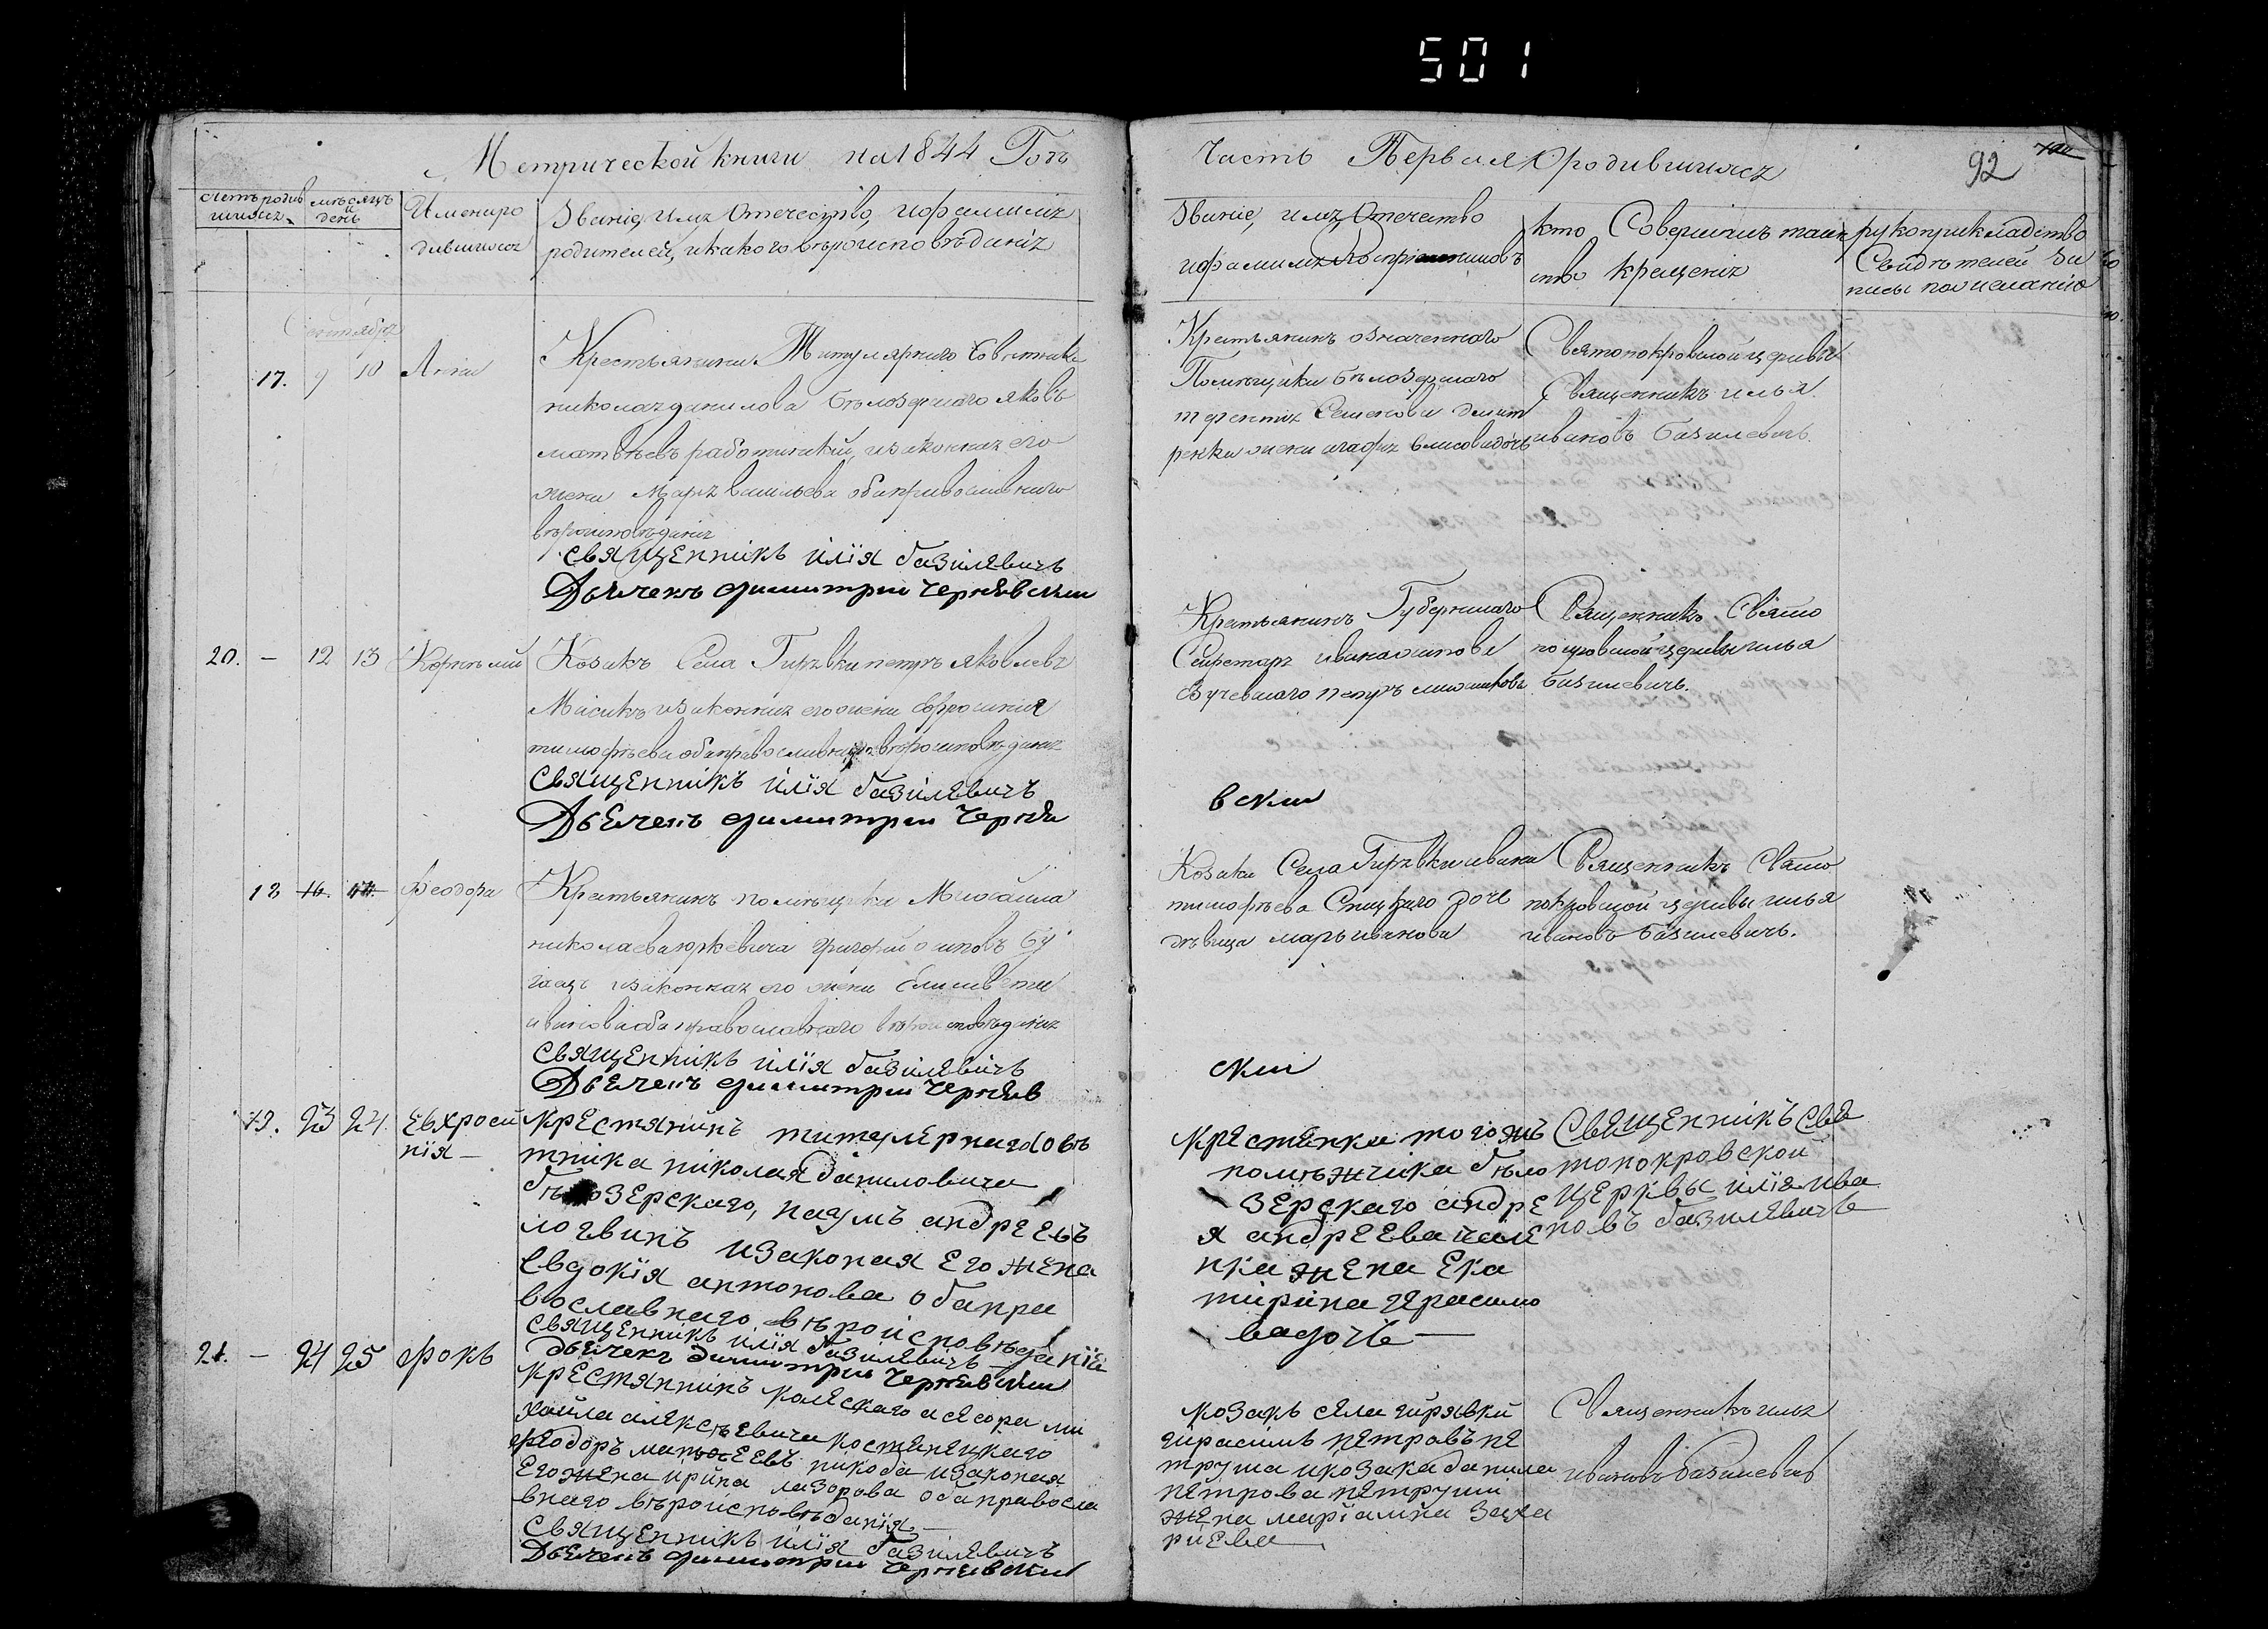 501
Метрической книги на 1844 Годъ
Часть Первая Ородившихся
92
счетъ родив
шихся
мѣсяцъ
и
день
Имена ро
дившихся
Званіе, имя Отечество, ифамилія
родителей, икакого вѣроисповѣданія
Званіе, имя, Отечество
ифамилія Воспріемниковъ
кто Совершалъ таин
ство крещенія
рукоприкладство
Свидѣтелей За
писы по желанію
Сентябрь
17. 9 10 Анна
Крестьянина Титулярнаго Совѣтника
николая данилова Бѣлозерскаго яковъ
матвѣевъ работинскій, изаконная его
жена Марія васильева обаправославнаго
вѣроисповѣданія
священникъ илїя базилевичъ
Дьячекъ димитрии Чернявскии
Крестьянинъ означеннаго
Помѣщика Бѣлозерскаго
терентія Семенова
жена агафія
Святопокровской церквы
Священникъ илья
ивановъ базилевичъ.
20. — 12 13 Корнилий
Козакъ Села Гирявки петръ яковлевъ
Масикъ изаконная его жена Ефросинія
тимофѣева обаправославнаго вѣроисповѣданія
священникъ илїя базилевичъ
Дьячекъ димитрии Черня
вскии
Крестьянинъ Губернскаго
Секретаря ивана осипова
петръ
Священникъ Свято
покровской церквы илья
базилевичъ.
18 16. 17. Феодора
Крестьянинъ помѣщика Михаила
николаева юркевича григорий осиповъ Бу
гаецъ изаконная его жена Елисавета
иванова оба православнаго вѣроисповѣданія
священникъ илїя базилевичъ
Дьячекъ димитрии Черняв
скии
Козака Села Гирявки ивана
тимофѣева Спицкаго дочь
дѣвица марія иванова
Священникъ Свято
покровской церквы илья
ивановъ базилевичъ.
19. 23 24. Евхроси
нія —
крестянинъ титулярнаго совѣ
тника николая даниловича
бѣлозерскаго, наумъ андреевъ
логвинъ изаконая его жена
Евдокїя антонова обапра
вославнаго вѣроисповѣданїя
священникъ илїя базилевичъ
дьячекъ димитрии Чернявскии
крестянка того жъ
помѣжчика бѣло
зерскаго андре
я андреева
нка жена ека
тирина герасимо
ва дочь —
священникъ свя
топокровской
церквы илїя ива
новъ базилевичъ
21. — 24 25 фокъ
крестянинъ колескаго асесора ми
хаила алексѣевича костенецкаго
феодоръ матфеевъ никода изаконая
его жена ирина лазорова оба правосла
внаго вѣроисповѣданїя —
священникъ илїя базилевичъ
Дьячекъ димитрии Чернявскии
козакъ села гирявки
гирасимъ петровъ пе
труша икозака данила
петрова петруши
жена марїамна заха
риева
Священникъ илья
ивановъ базилевичъ